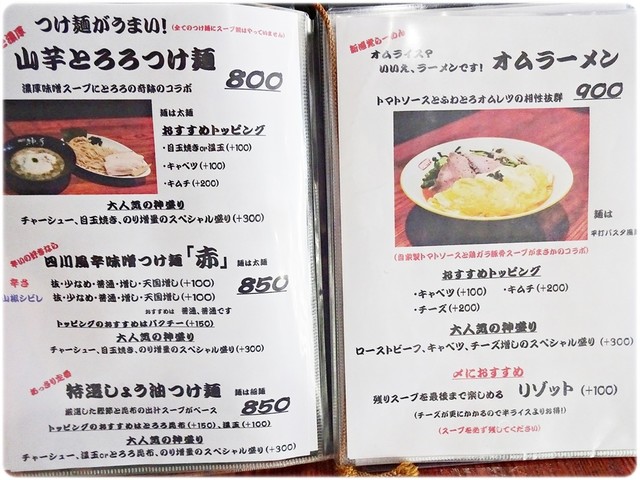 濃厚
つけ麺がうまい!
(全てのつけ麺にスープ割はやっていません)
山芋とろろつけ麺 800
濃厚味噌スープにとろろの奇跡のコラボ
麺は太麺
おすすめトッピング
・目玉焼きor温玉(+100)
・キャベツ(+100)
・キムチ(+200)
大人気の神盛り
チャーシュー、目玉焼き、のり増量のスペシャル盛り(+300)
辛いの好きなら
四川風辛味噌つけ麺「赤」 麺は太麺
850
辛さ 抜・少なめ・普通・増し・天国増し(+100)
山椒シビレ 抜・少なめ・普通・増し・天国増し(+100)
おすすめは 普通、普通です
トッピングのおすすめはパクチー(+150)
大人気の神盛り
チャーシュー、目玉焼き、のり増量のスペシャル盛り(+300)
あっさり定番
特選しょう油つけ麺 麺は細麺
厳選した鰹節と昆布の出汁スープがベース 850
トッピングのおすすめはとろろ昆布(+150)、温玉(+100)
大人気の神盛り
チャーシュー、温玉orとろろ昆布、のり増量のスペシャル盛り(+300)
新感覚らーめん
オムライス?
いいえ、ラーメンです! オムラーメン
900
トマトソースとふわとろオムレツの相性抜群
麺は
平打パスタ風
(自家製トマトソースと鶏ガラ豚骨スープがまさかのコラボ)
おすすめトッピング
・キャベツ(+100) ・キムチ(+200)
・チーズ(+200)
大人気の神盛り
ローストビーフ、キャベツ、チーズ増しのスペシャル盛り(+300)
〆におすすめ
残りスープを最後まで楽しめる リゾット(+100)
(チーズが更にかかるので半ライスよりお得!)
(スープを必ず残してください)